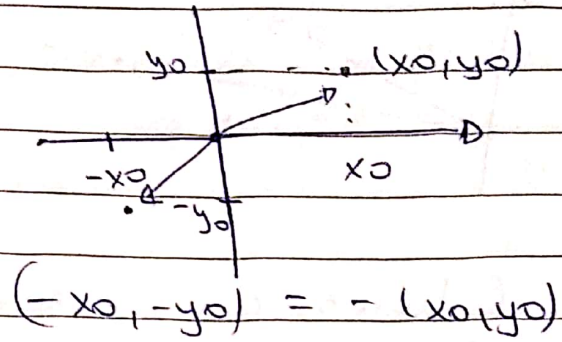 y0 (x0,y0)
-x0 x0
-y0
(-x0,-y0) = - (x0,y0)